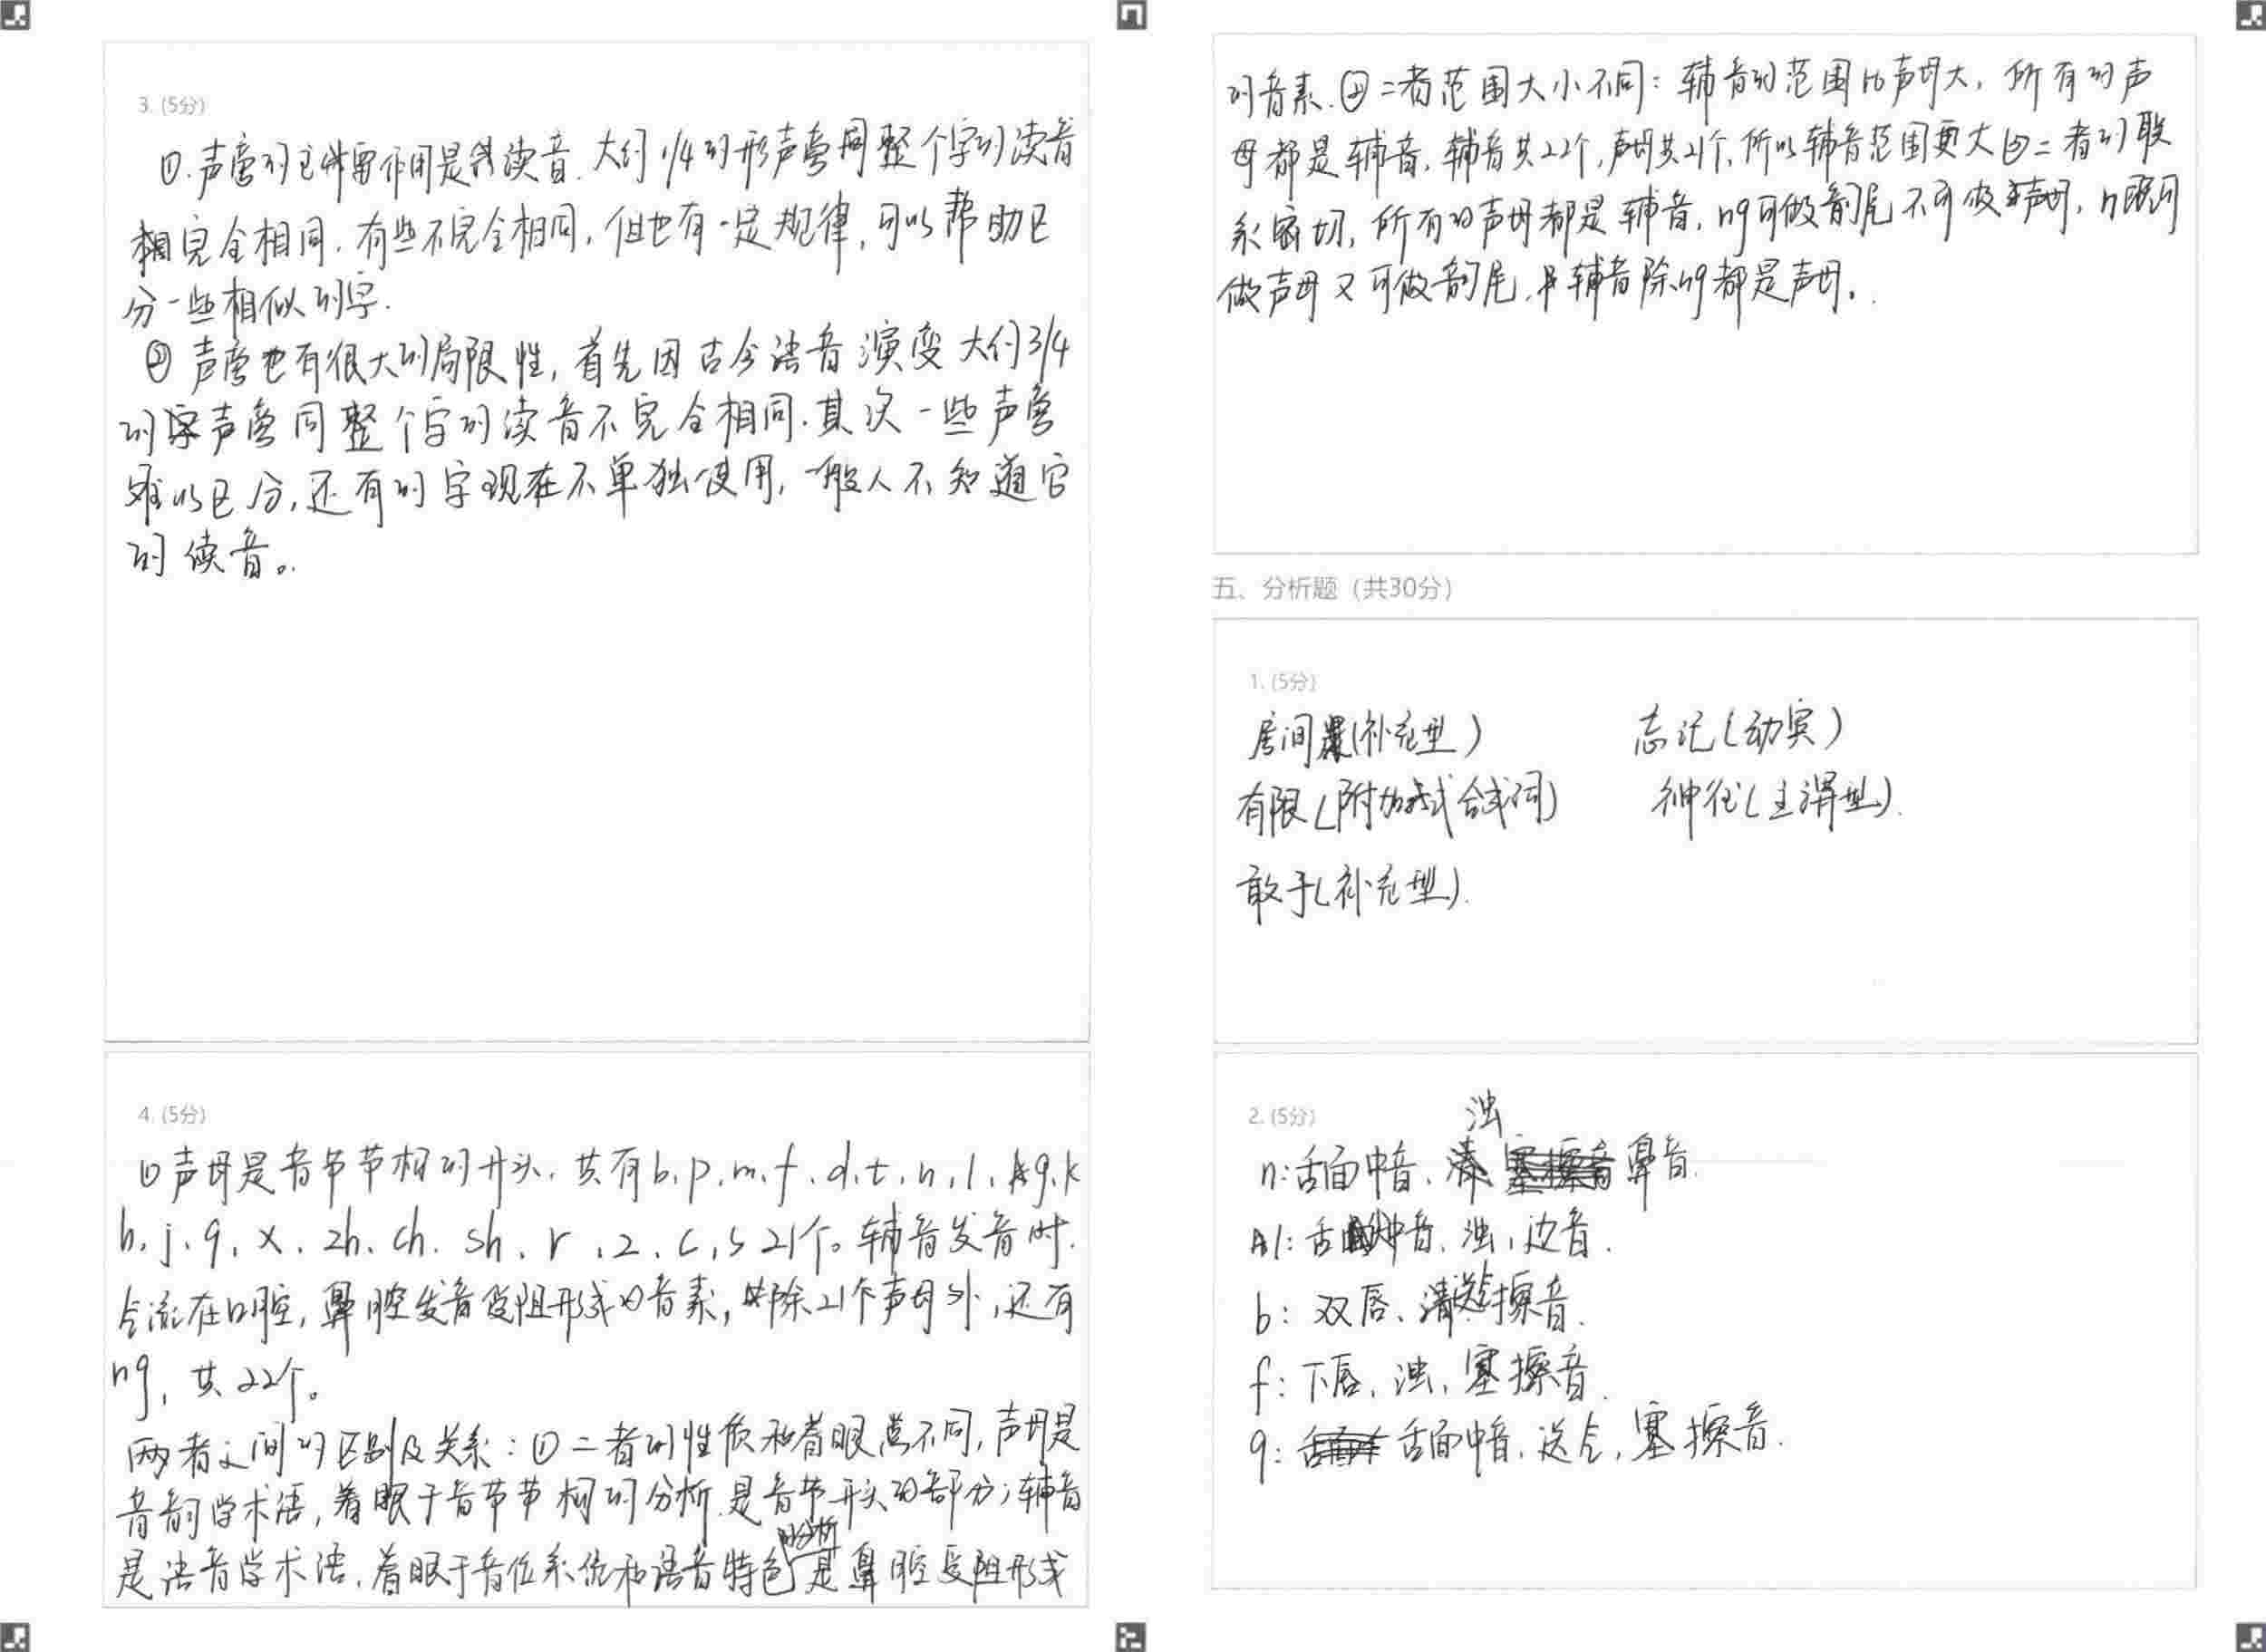 3. (5分)
①.声旁的主要作用是表读音.大约1/4的形声旁同整个字的读音
相完全相同.有些不完全相同,但也有一定规律,可以帮助区
分一些相似的字.
② 声旁也有很大的局限性,首先因古今语音演变大约3/4
的字声旁同整个字的读音不完全相同.其次一些声旁
难以区分,还有的字现在不单独使用,一般人不知道它
的读音。
4. (5分)
①声母是音节节相的开头,共有b、p、m、f、d、t、n、l、g、k
h、j、q、x、zh、ch、sh、r、z、c、s 21个。辅音发音时.
气流在口腔,鼻腔发音受阻形成的音素,除21个声母外,还有
ng,共22个。
两者之间的区别及关系:①二者的性质和着眼点不同,声母是
音韵学术语,着眼于音节节相的分析.是音节开头的部分;辅音
的分析
是语音学术语.着眼于音位系统和语音特色是鼻腔受阻形成
的音素.②二者范围大小不同:辅音的范围比声母大,所有的声
母都是辅音,辅音共22个,声母共21个,所以辅音范围更大③二者的联
系密切,所有的声母都是辅音,ng可做韵尾不可做声母,n既可
做声母又可做韵尾,辅音除ng都是声母。
五、分析题(共30分)
1. (5分)
房间(补充型) 忘记(动宾)
有限(附加式合成词) 神往(主谓型).
敢于(补充型).
2. (5分)
浊
n:舌面中音、鼻音.
l:舌中音、浊,边音.
送气
b:双唇、清擦音.
f:下唇,浊,塞擦音.
q:舌面中音,送气,塞擦音.